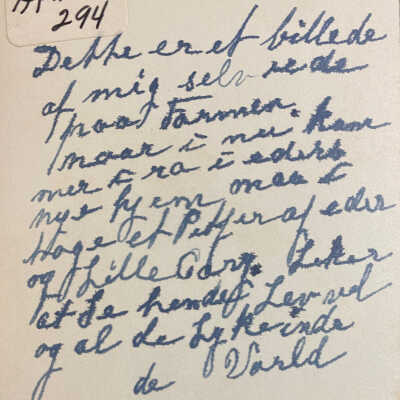 294
Dette er et billede
af mig selv rede
paa Farmen.
naar i nu kom
mer i ra i eders
nye hjem maa i
tage et af eder
og Lille
at Se hende Lev vel
og al de Lykeinde
de Vorld